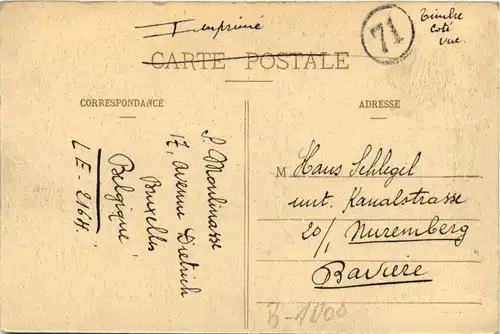 Imprimé
71
timbre
coté
vue.
CARTE POSTALE
CORRESPONDANCE
ADRESSE
S. Moulinasse
17, avenue Dietrich
Bruxelles
Belgique
LE-2164.
M Hans Schlegil
unt. Kanalstrasse
20/, Nuremberg
Baviere